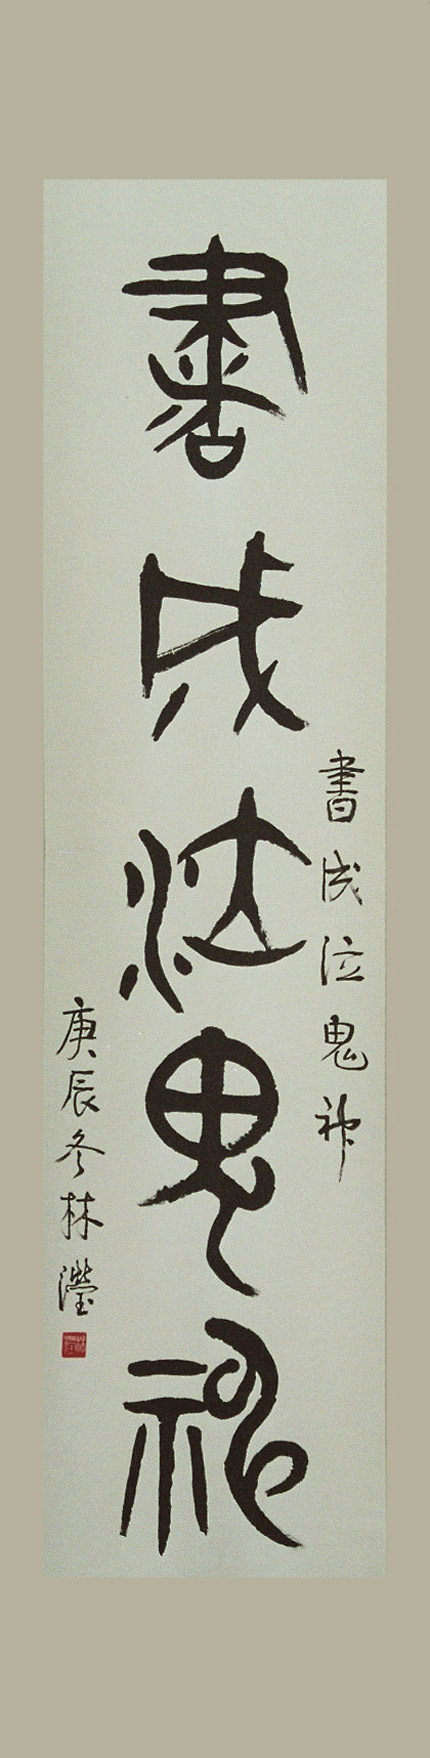 書成泣鬼神
書成泣鬼神
庚辰冬林瀅